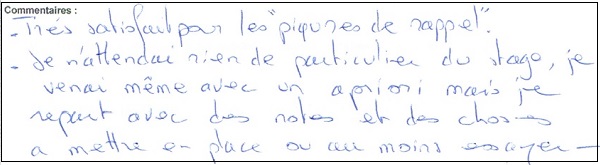 Commentaires :
- Très satisfait pour les "piqures de rappel".
- Je n'attendai rien de particulier du stage, je
venai même avec un apriori mais je
repart avec des notes et des choses
a mettre en place ou au moins essayer -